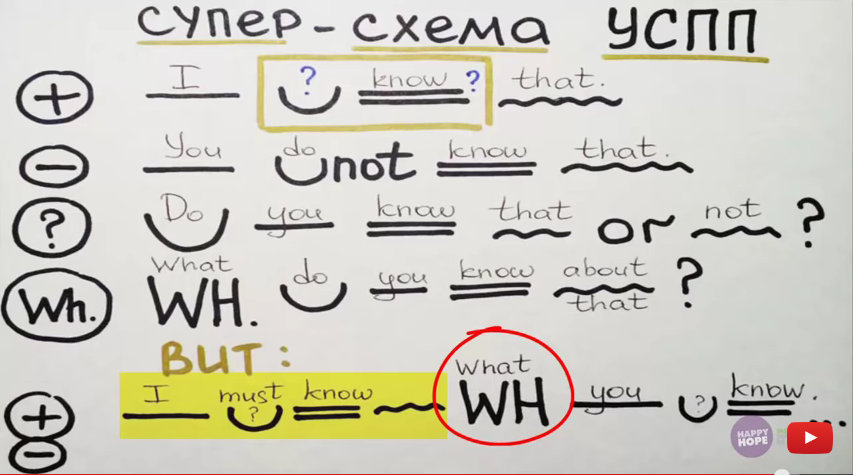 СУПЕР-СХЕМА УСПП
+ I ? know ? that.
– You do not know that.
? Do you know that or not ?
Wh. What WH. do you know about that ?
BUT:
+ – I must ? know What WH you ? know. ...
HAPPY HOPE